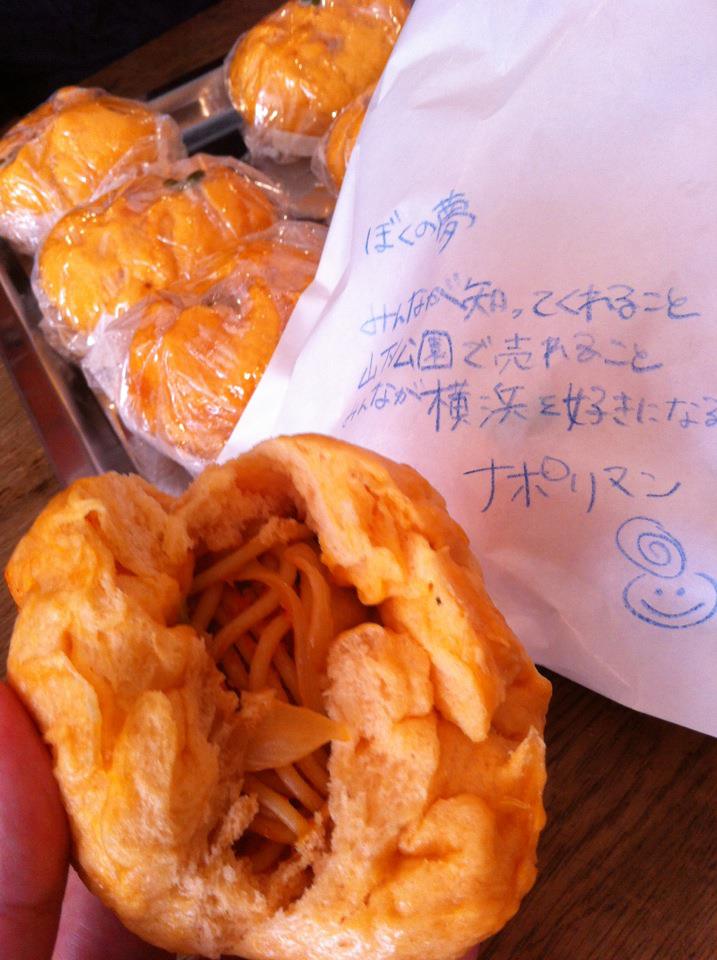 ぼくの夢
みんなが知ってくれること
山下公園で売れること
みんなが横浜を好きになる
ナポリマン